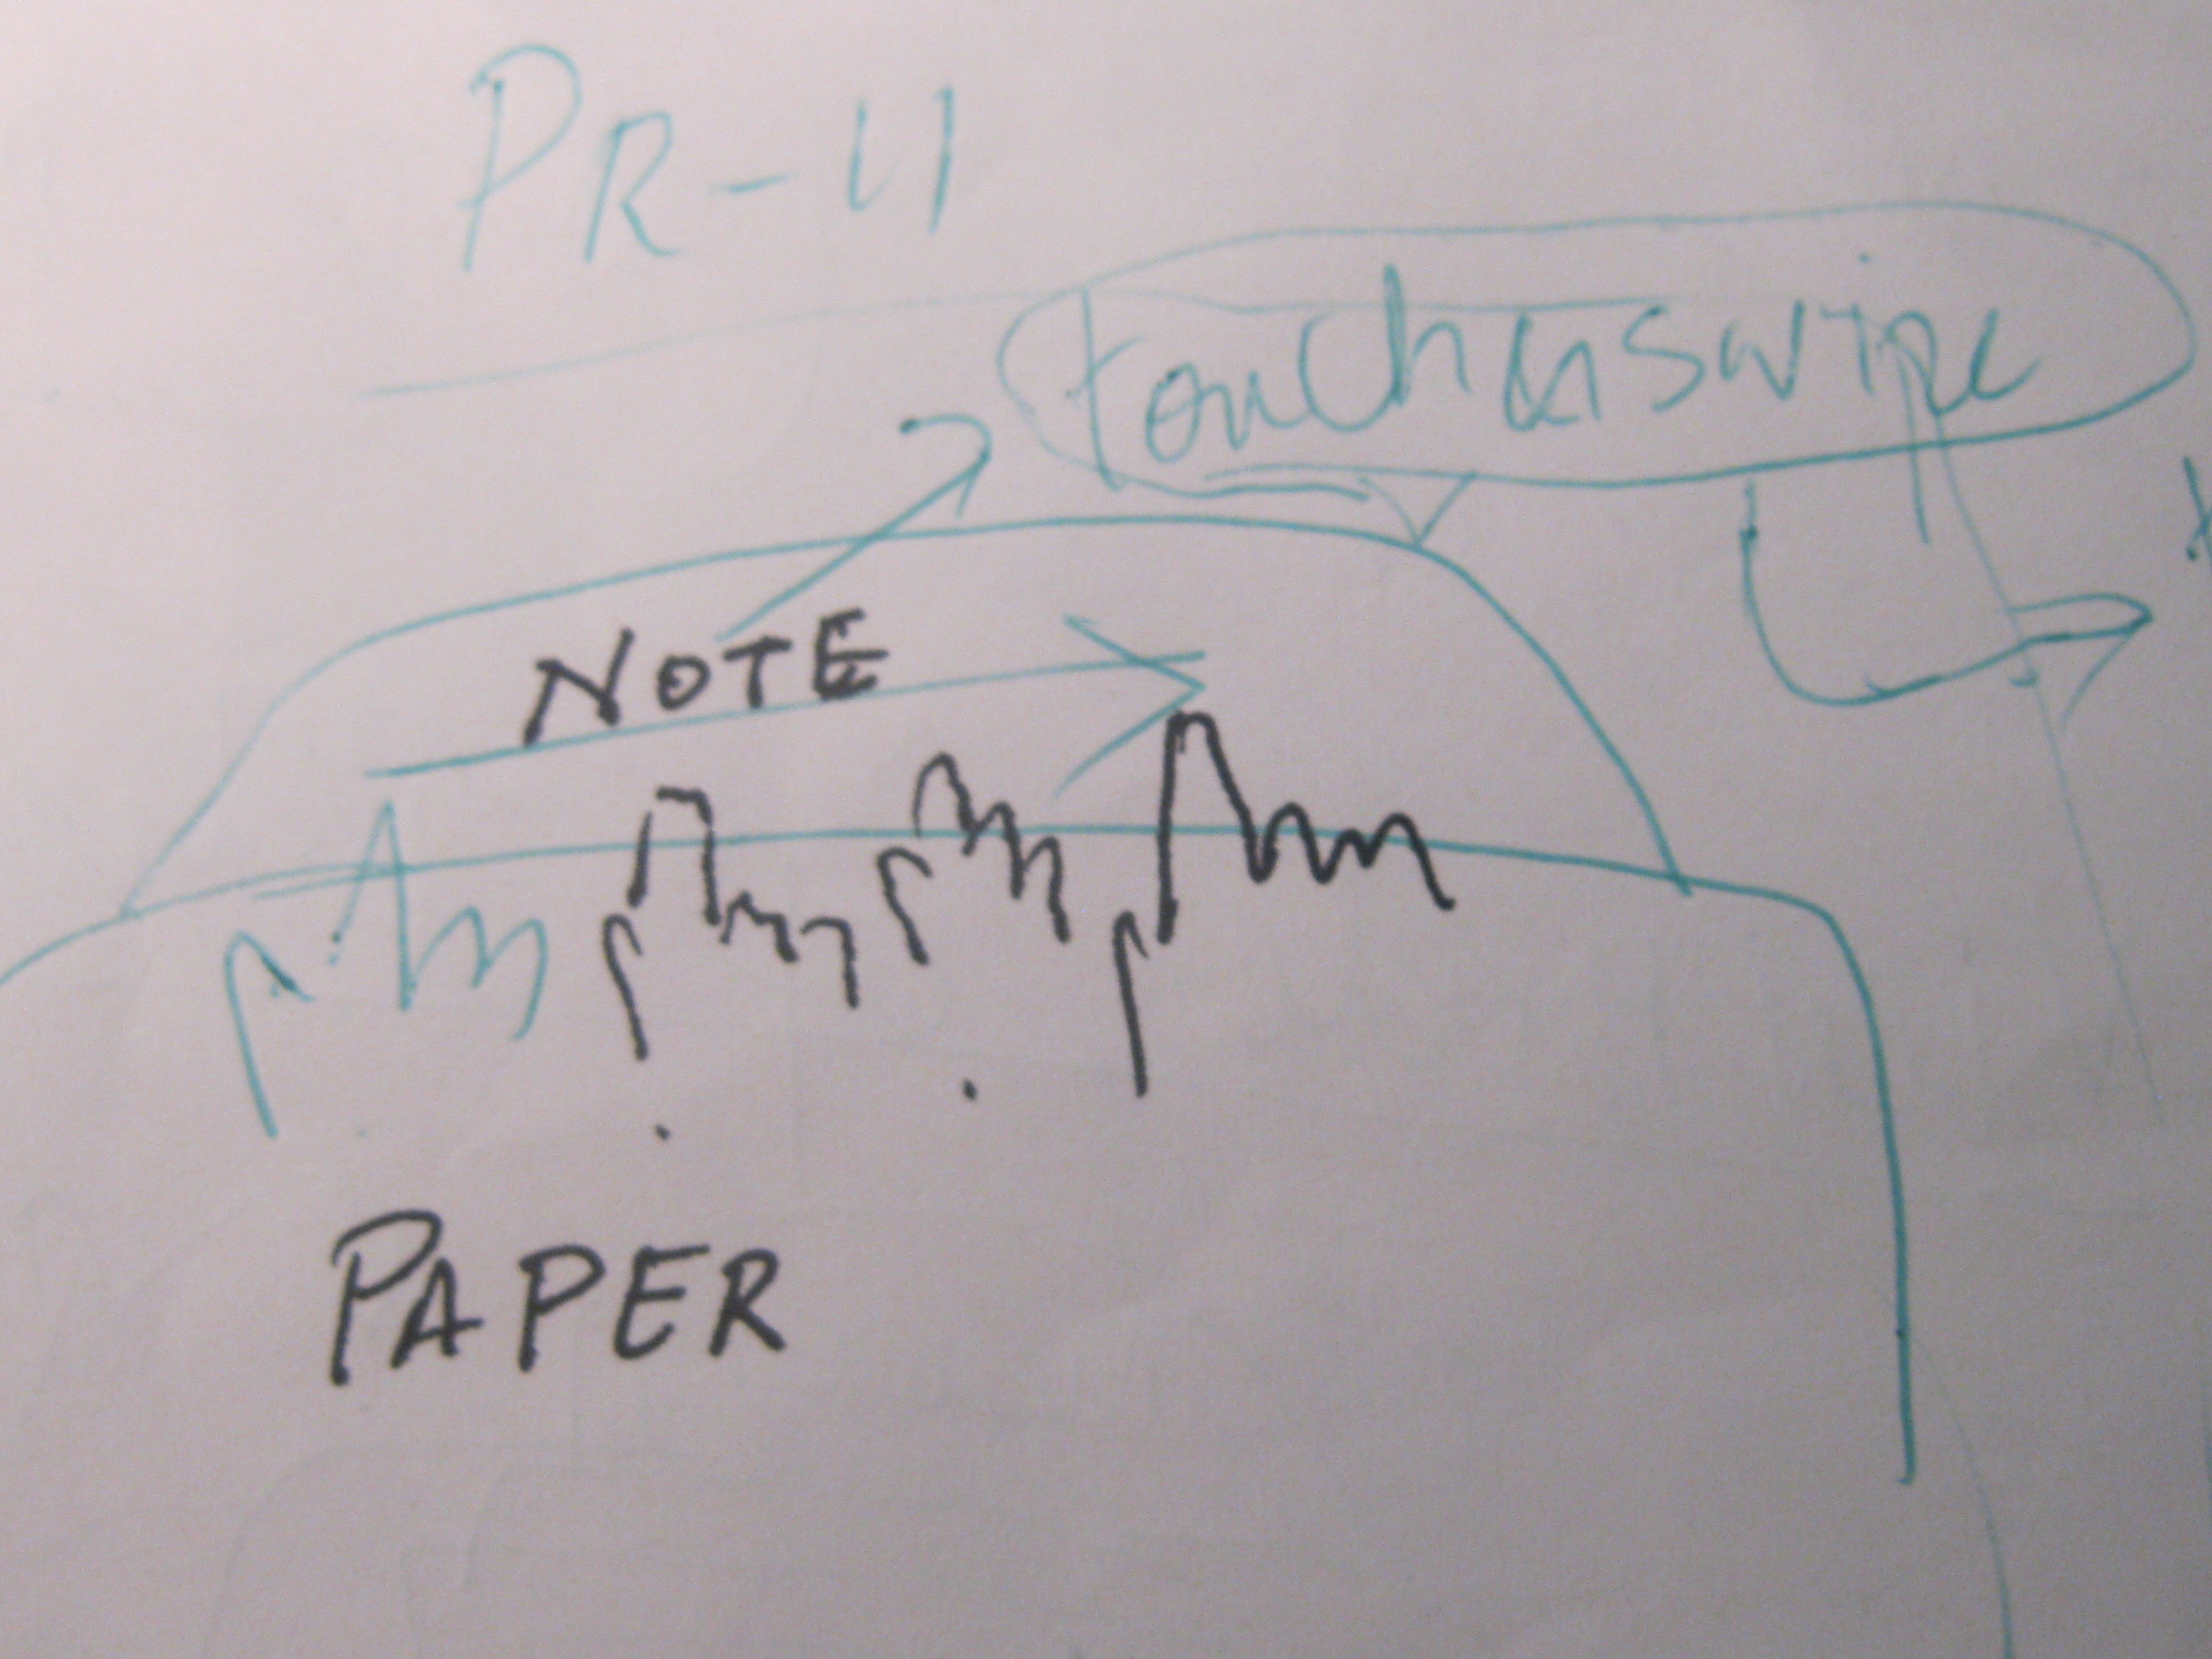 PR-11
touch & swipe
NOTE
PAPER